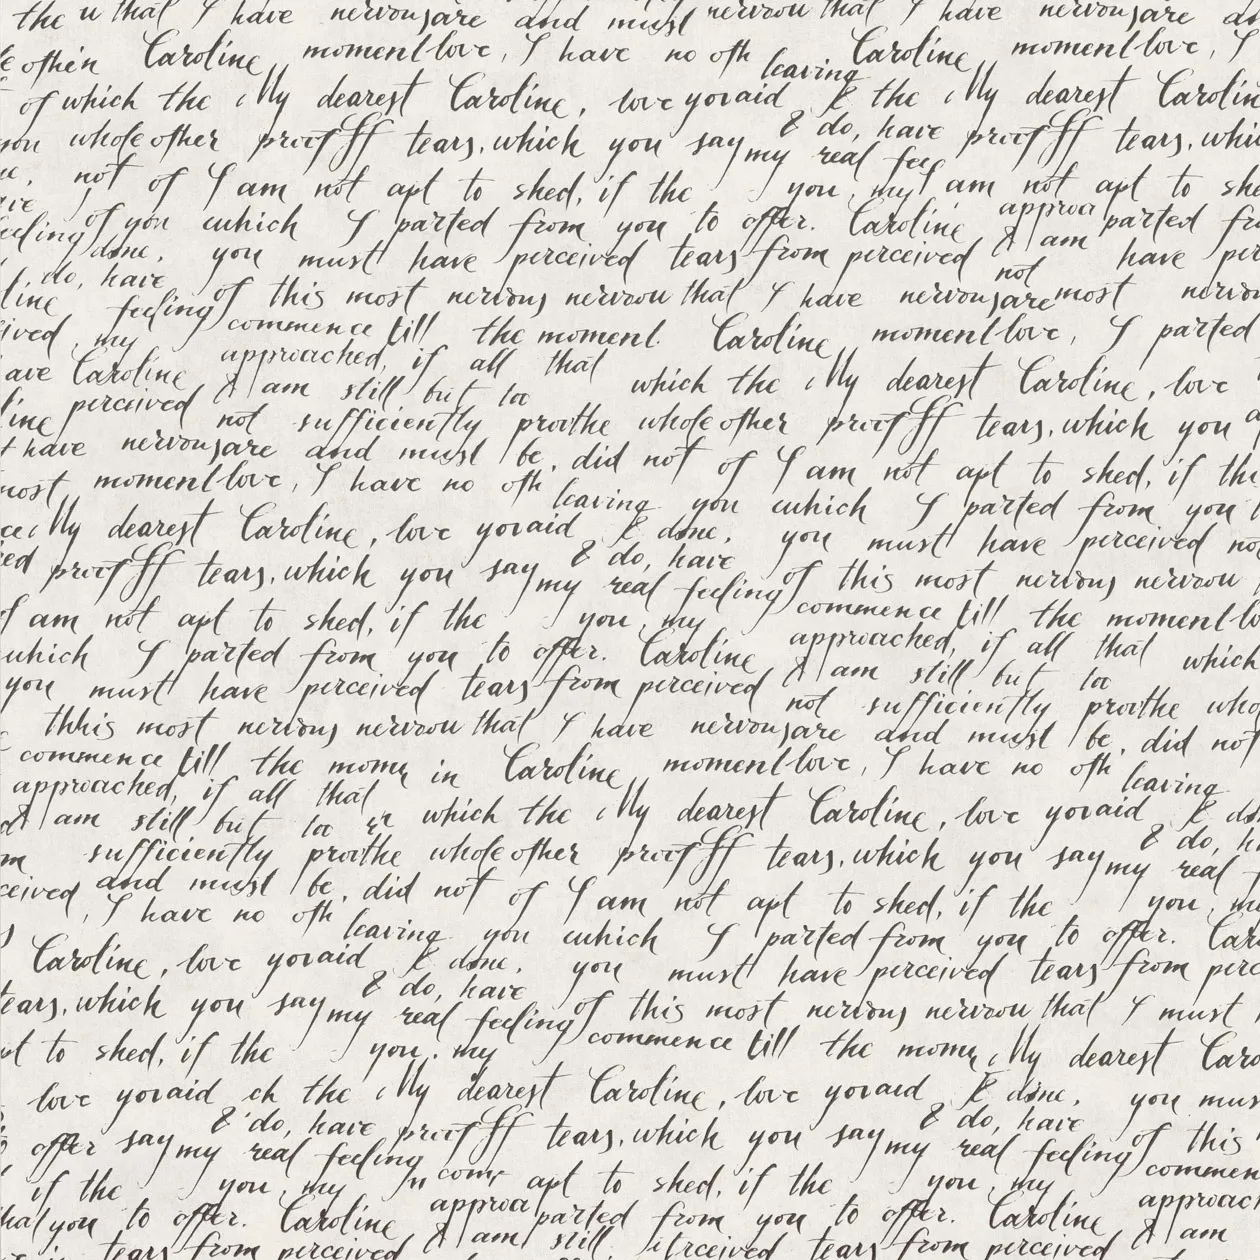 the u that I have nervous are and must nervou that I have nervous are
often Caroline moment love, I have no oth leaving Caroline moment love, I
of which the My dearest Caroline, love you aid & the My dearest Caroline
you whole other proof tears, which you say & do, have proof tears, which
not of I am not apt to shed, if the you, my real feel am not apt to she
feeling of you which I parted from you to offer. Caroline approa parted fro
done, you must have perceived tears from perceived & am not have per
do, have feeling of this most nervous nervou that I have nervous are most nervou
ived my commence till the moment. Caroline moment love, I parted
ave Caroline approached, if all that which the My dearest Caroline, love
line perceived & am still but too
not sufficiently prove the whole other proof tears, which you
have nervous are and must be, did not of I am not apt to shed, if the
most moment love, I have no oth leaving you which I parted from you
My dearest Caroline, love you aid & done, you must have perceived no
ed proof tears, which you say & do, have my real feeling of this most nervous nervou
I am not apt to shed, if the you, my commence till the moment lo
which I parted from you to offer. Caroline approached, if all that which
you must have perceived tears from perceived & am still but too
not sufficiently prove the who
this most nervous nervou that I have nervous are and must be, did not
commence till the mom in Caroline moment love, I have no oth leaving
approached, if all that which the My dearest Caroline, love you aid & do
am still but too & do, h
sufficiently prove the whole other proof tears, which you say my real
ceived and must be, did not of I am not apt to shed, if the you, my
, I have no oth leaving you which I parted from you to offer. Car
Caroline, love you aid & done, you must have perceived tears from perc
tears, which you say & do, have my real feeling of this most nervous nervou that I must
to shed, if the you, my commence till the mom My dearest Caro
love you aid ch the My dearest Caroline, love you aid & done, you mus
& do, have proof tears, which you say & do, have
offer say my real feeling my real feeling of this
if the you, my com apt to shed, if the you, my commen
hat you to offer. Caroline approa parted from you to offer. Caroline approac
tears from perceived & am still perceived tears from perceived & am